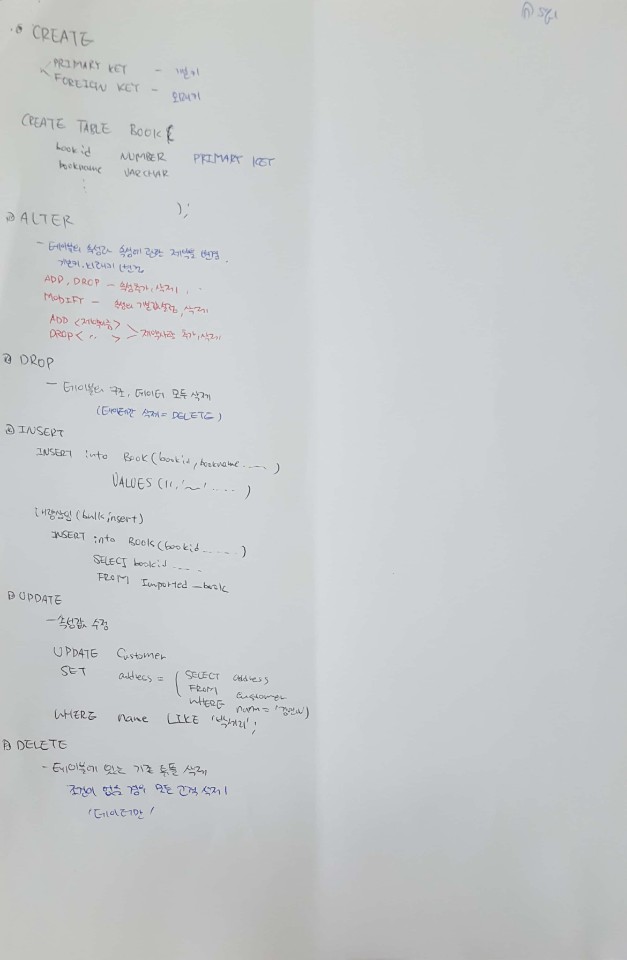 CREATE
PRIMARY KEY - 기본키
FOREIGN KEY - 외래키
CREATE TABLE BOOK(
bookid NUMBER PRIMARY KEY
bookname VARCHAR
:
);
ALTER
- 테이블의 속성과 속성에 관한 제약을 변경.
기본키, 외래키 변경
ADD, DROP - 속성추가, 삭제
MODIFY - 속성의 기본값설정, 삭제
ADD <제약사항>
DROP< 〃 > 제약사항 추가, 삭제
DROP
- 테이블의 구조, 데이터 모두 삭제
(데이터만 삭제 = DELETE)
INSERT
INSERT into Book(bookid, bookname.....)
VALUES (11, '~' .....)
대량삽입(bulk insert)
INSERT into BOOK(bookid.....)
SELECT bookid ....
FROM Imported_book
UPDATE
- 속성값 수정
UPDATE Customer
SET address = ( SELECT address
FROM customer
WHERE
WHERE name LIKE
DELETE
- 테이블에 있는 기존 튜플 삭제
조건이 없을 경우 모든 삭제!
'데이터만'